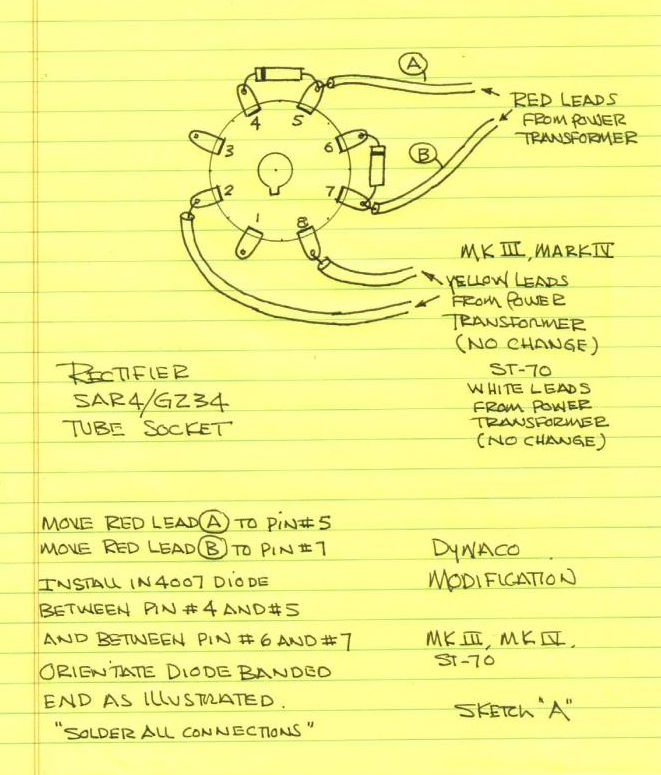 A
RED LEADS
FROM POWER
TRANSFORMER
B
4
5
3
6
2
7
1
8
MK III, MARK IV
YELLOW LEADS
FROM POWER
TRANSFORMER
(NO CHANGE)
ST-70
WHITE LEADS
FROM POWER
TRANSFORMER
(NO CHANGE)
RECTIFIER
5AR4/GZ34
TUBE SOCKET
MOVE RED LEAD A TO PIN#5
MOVE RED LEAD B TO PIN#7
INSTALL IN4007 DIODE
BETWEEN PIN #4 AND #5
AND BETWEEN PIN #6 AND #7
ORIENTATE DIODE BANDED
END AS ILLUSTRATED.
"SOLDER ALL CONNECTIONS"
DYNACO
MODIFICATION
MK III, MK IV,
ST-70
SKETCH "A"